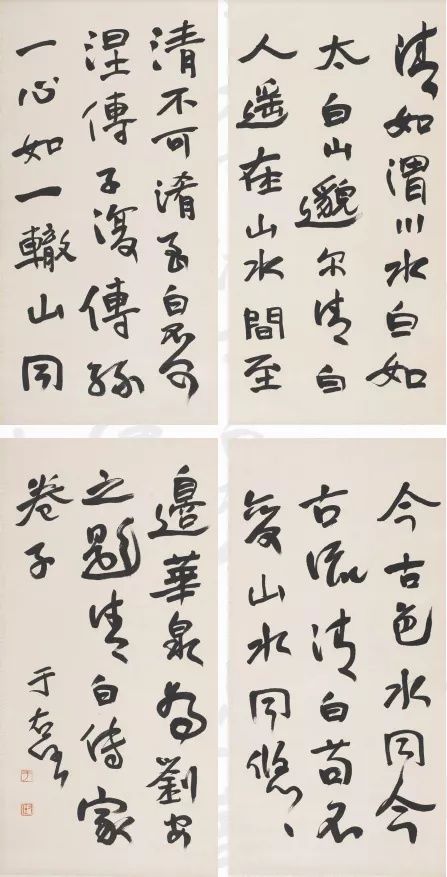 清如渭川水白如
太白山邈尔清白
人遥在山水間至
清不可淆至白不可
涅傳子復傳孫
一心如一轍山同
今古色水同今
古流清白苟不
變山水同悠〻
邊華泉為劉安
之題清白傳家
卷子
于右任